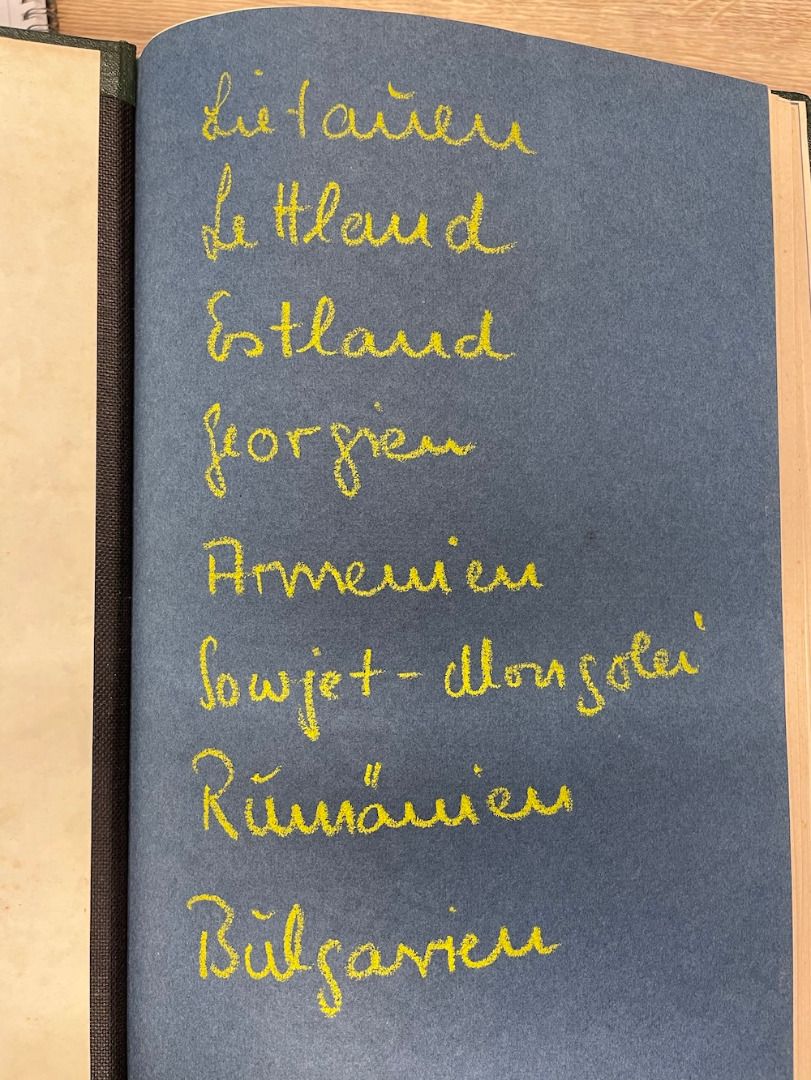 Lietauen
Lettland
Estland
Georgien
Armenien
Sowjet-Mongolei
Rumänien
Bulgarien